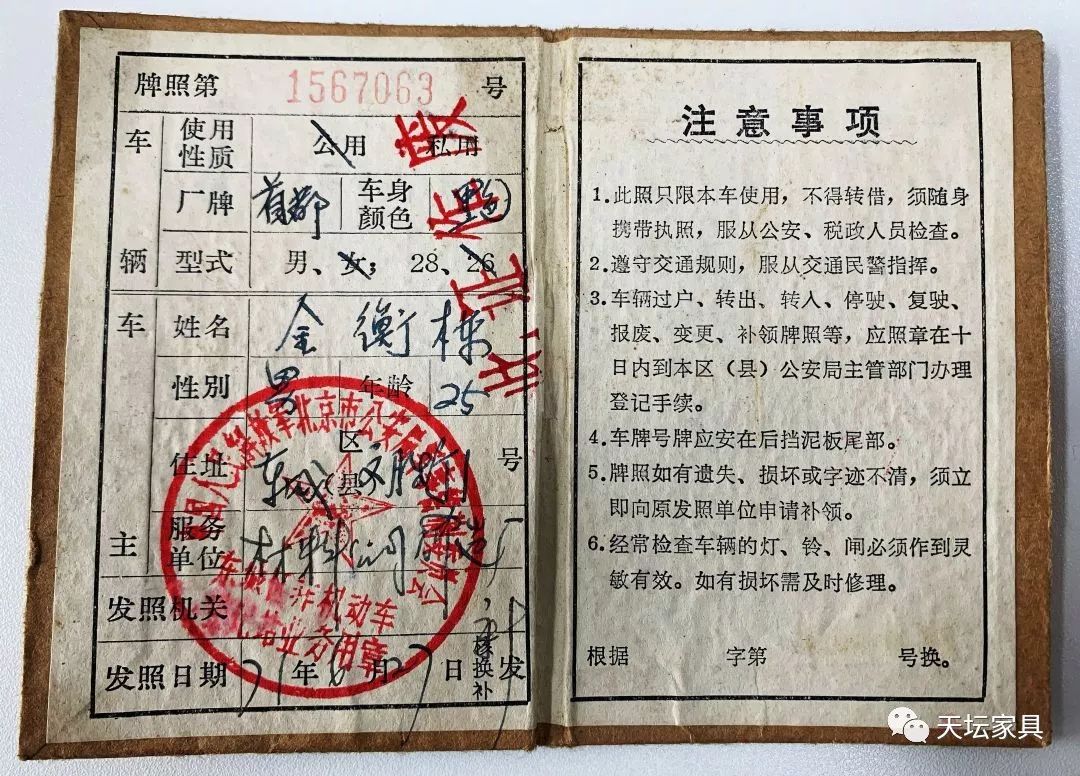 牌照第 1567063 号
车辆
使用性质 公用 私用
厂牌 首都 车身颜色 黑
型式 男、女; 28、26
车主
姓名 金衡栋
性别 男 年龄 25
住址 东城 区(县) 号
服务单位 材料
发照机关
发照日期 71年6月27日 换补发
东城
非机动车
专用章
注意事项
1.此照只限本车使用，不得转借，须随身
携带执照，服从公安、税政人员检查。
2.遵守交通规则，服从交通民警指挥。
3.车辆过户、转出、转入、停驶、复驶、
报废、变更、补领牌照等，应照章在十
日内到本区（县）公安局主管部门办理
登记手续。
4.车牌号牌应安在后挡泥板尾部。
5.牌照如有遗失、损坏或字迹不清，须立
即向原发照单位申请补领。
6.经常检查车辆的灯、铃、闸必须作到灵
敏有效。如有损坏需及时修理。
根据 字第 号换。
天坛家具